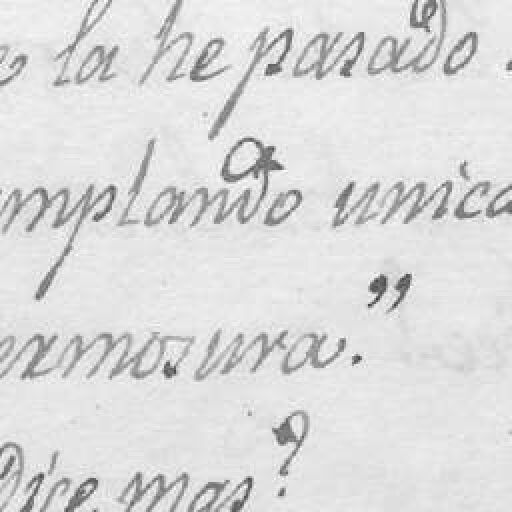 la he pasado.
mplando unica
ermosura."
Dice mas?